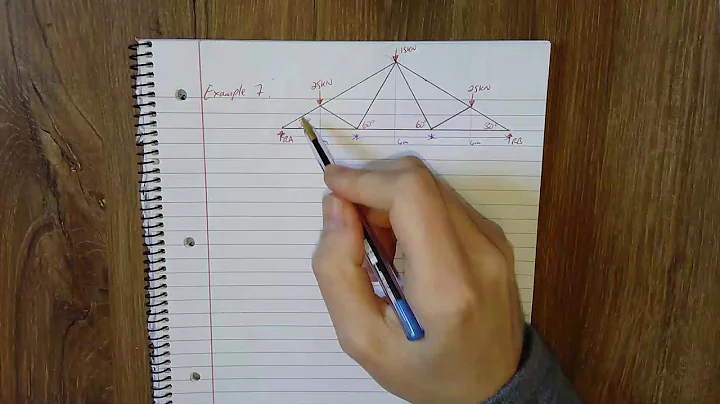 15KN
Example 7.
25KN
25KN
60°
60°
30°
RA
m
6m
6m
RB